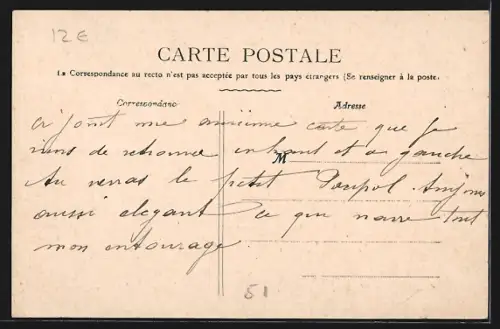 12 €
CARTE POSTALE
La Correspondance au recto n'est pas acceptée par tous les pays étrangers (Se renseigner à la poste.
Correspondance
Adresse
ci joint une ancienne carte que je
viens de retrouver en haut et a gauche
M
tu verras le petit toujours
aussi elegant ce qui navre tout
mon entourage
51